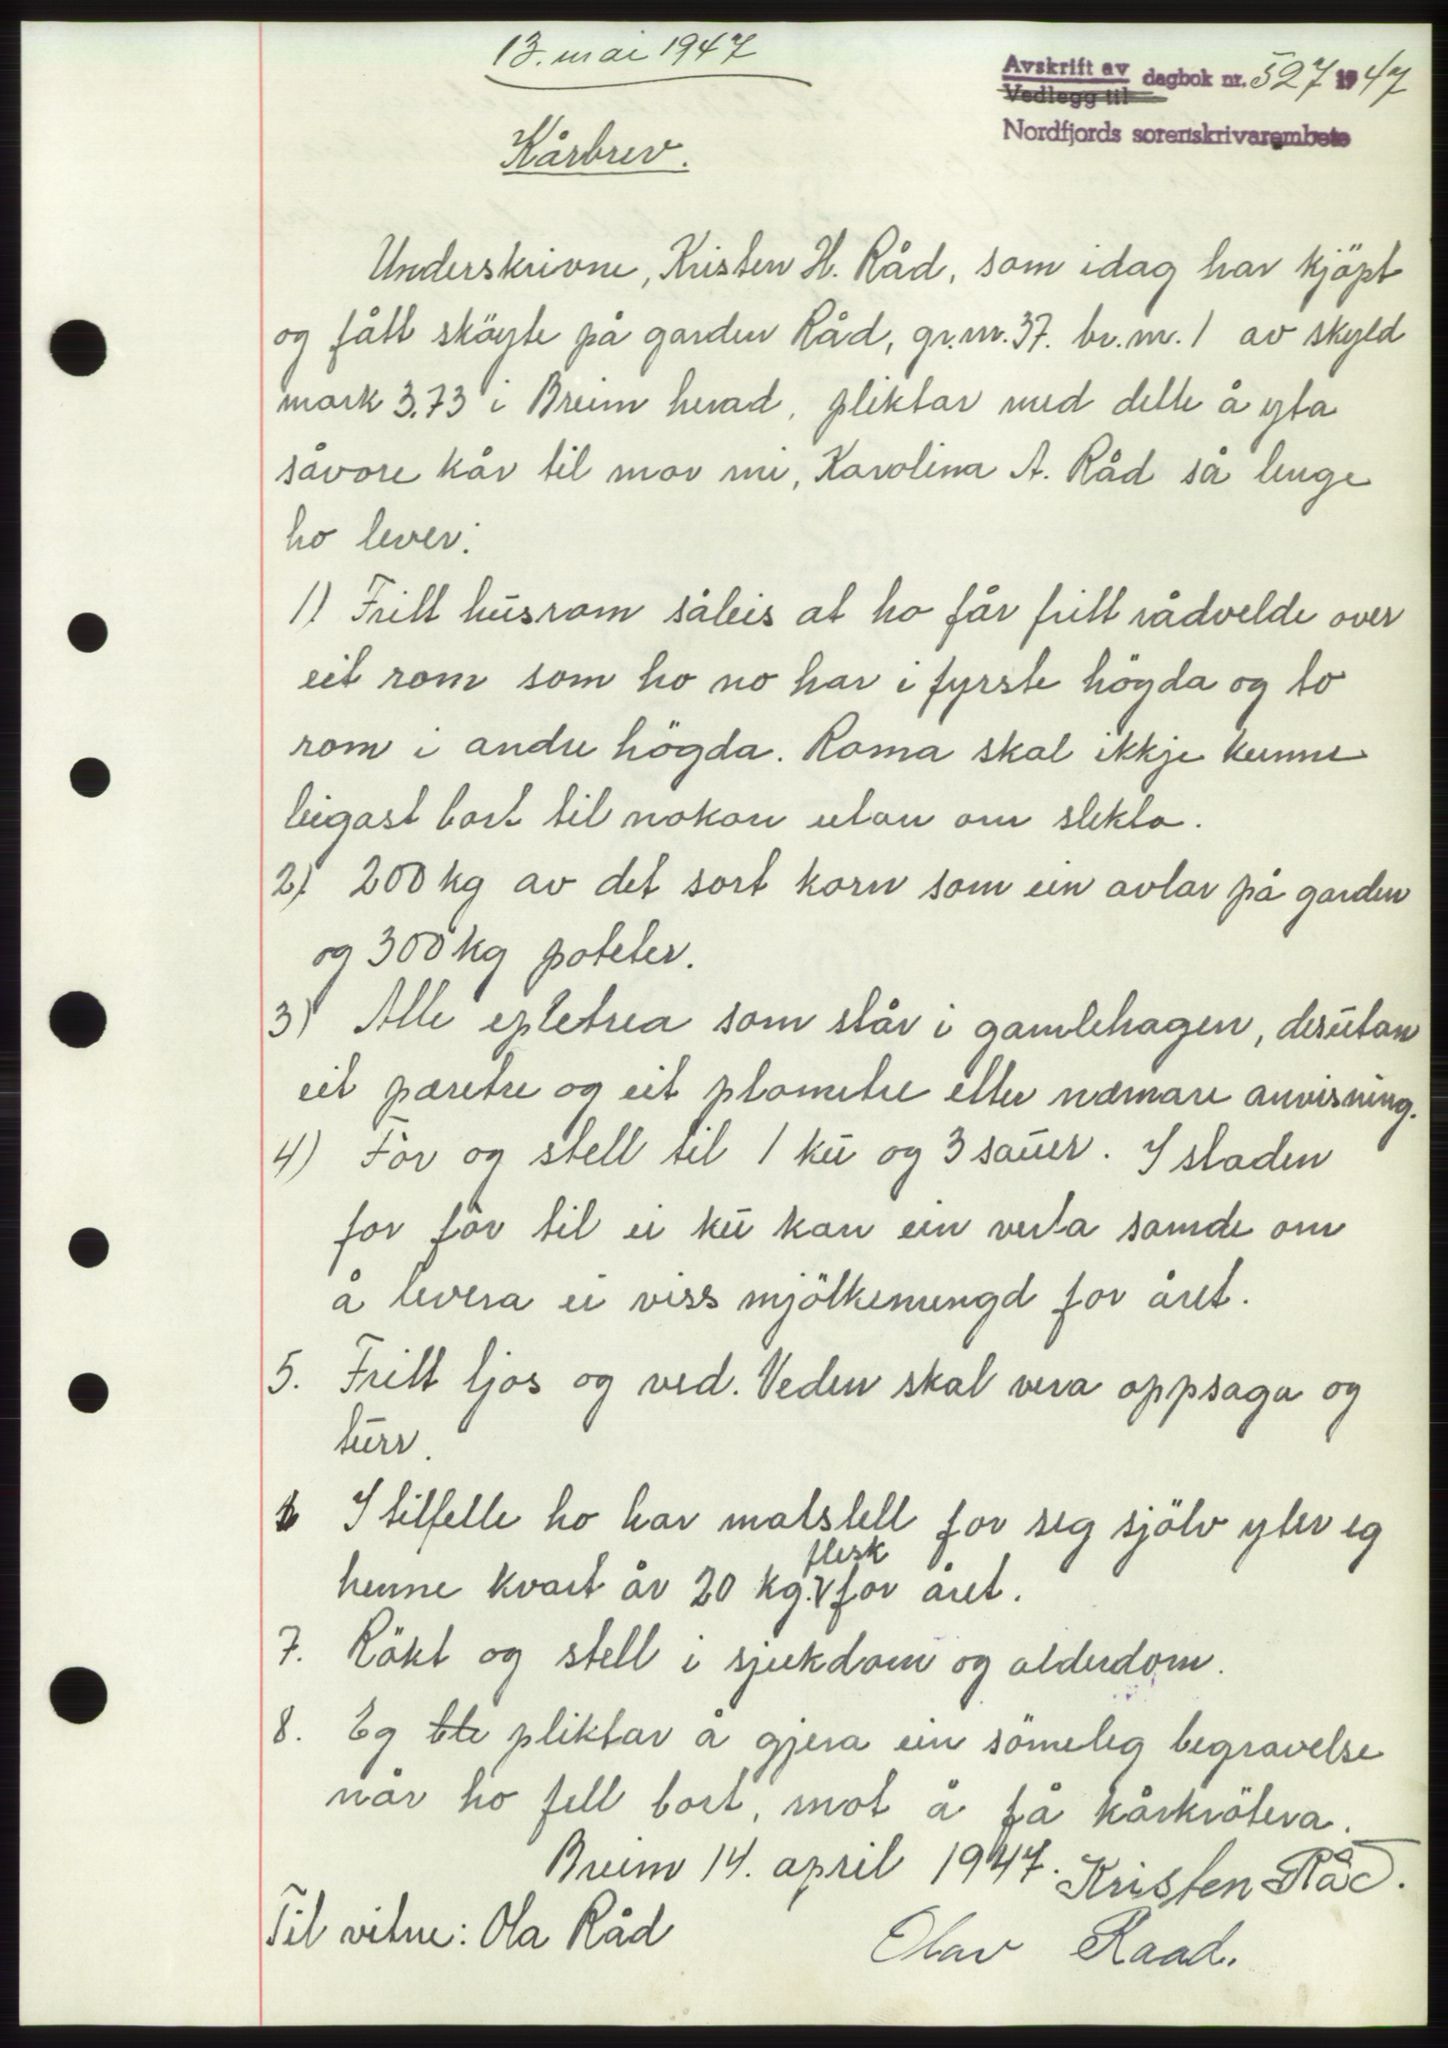 13. mai 1947
Avskrift av dagbok nr. 527 1947
Vedlegg til
Nordfjords sorenskrivarembete
Kårbrev.
Underskrivne, Kristen H. Råd, som idag har kjöpt
og fått sköyte på garden Råd, gr.nr. 37. br.nr. 1 av skyld
mark 3.73 i Breim herad, pliktar med dette å yta
såvore kår til mor mi, Karolina A. Råd så lenge
ho lever:
1) Fritt husrom såleis at ho får fritt rådvelde over
eit rom som ho no har i fyrste högda og to
rom i andre högda. Roma skal ikkje kunne
leigast bort til nokon utan om slekta.
2) 200 kg av det sort korn som ein avlar på garden
og 300 kg poteter.
3) Alle epletrea som står i gamlehagen, desutan
eit pæretre og eit plometre etter nærmare anvisning.
4) Fòr og stell til 1 ku og 3 sauer. I staden
for fòr til ei ku kan ein verta samde om
å levera ei viss mjölkemengd for året.
5. Fritt ljos og ved. Veden skal vera oppsaga og
turr.
6 I tilfelle ho har matstell for seg sjölv yter eg
henne kvart år 20 kg. flesk for året.
7. Rökt og stell i sjukdom og alderdom.
8. Eg pliktar å gjera ein sömeleg begravelse
når ho fell bort, mot å få kårkrötera.
Breim 14. april 1947. Kristen Råd.
Til vitne: Ola Råd
Olav Raad.